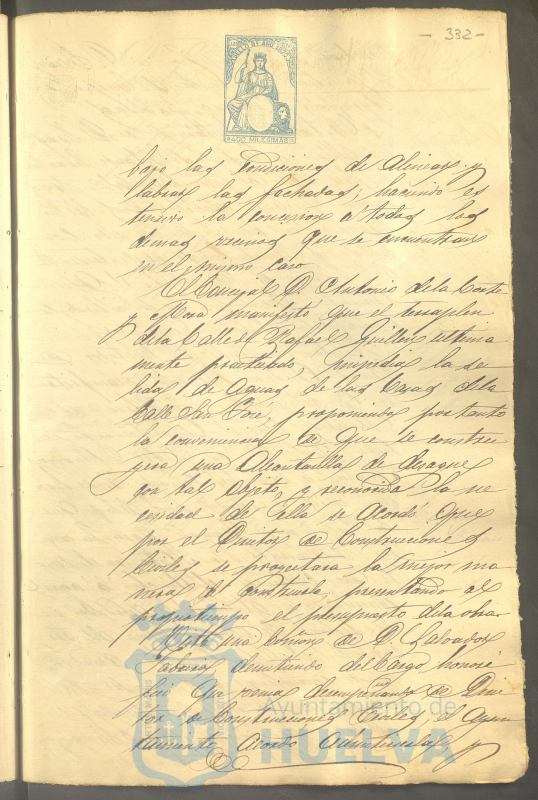 - 332 -
400 MILESIMAS
bajo las condiciones de alinear y
labrar las fachadas; haciendo es
tensivo la concesion á todas las
demas vecinos que se encuentran
en el mismo caso
El Concejal D. Antonio de la Corte
y Mora manifestó que el terraplen
de la Calle de Rafael Guillen ultima
mente practicado, impedia la sa
lida de aguas de las Casas de la
Calle San José, proponiendo por tanto
la conveniencia de que se constru
yera una Alcantarilla de desague
con tal objeto, y reconocida la ne
cesidad de ella se acordó que
por el Director de Construcciones
Civiles se proyectara la mejor ma
nera de construirla, presentando al
propio tiempo el presupuesto de la obra
Vista una de D. Salvador
dimitiendo del Cargo honori
fico que venia desempeñando de Direc
tor de Construcciones Civiles, el Ayun
tamiento acordó admitirsela y
Ayuntamiento de
HUELVA